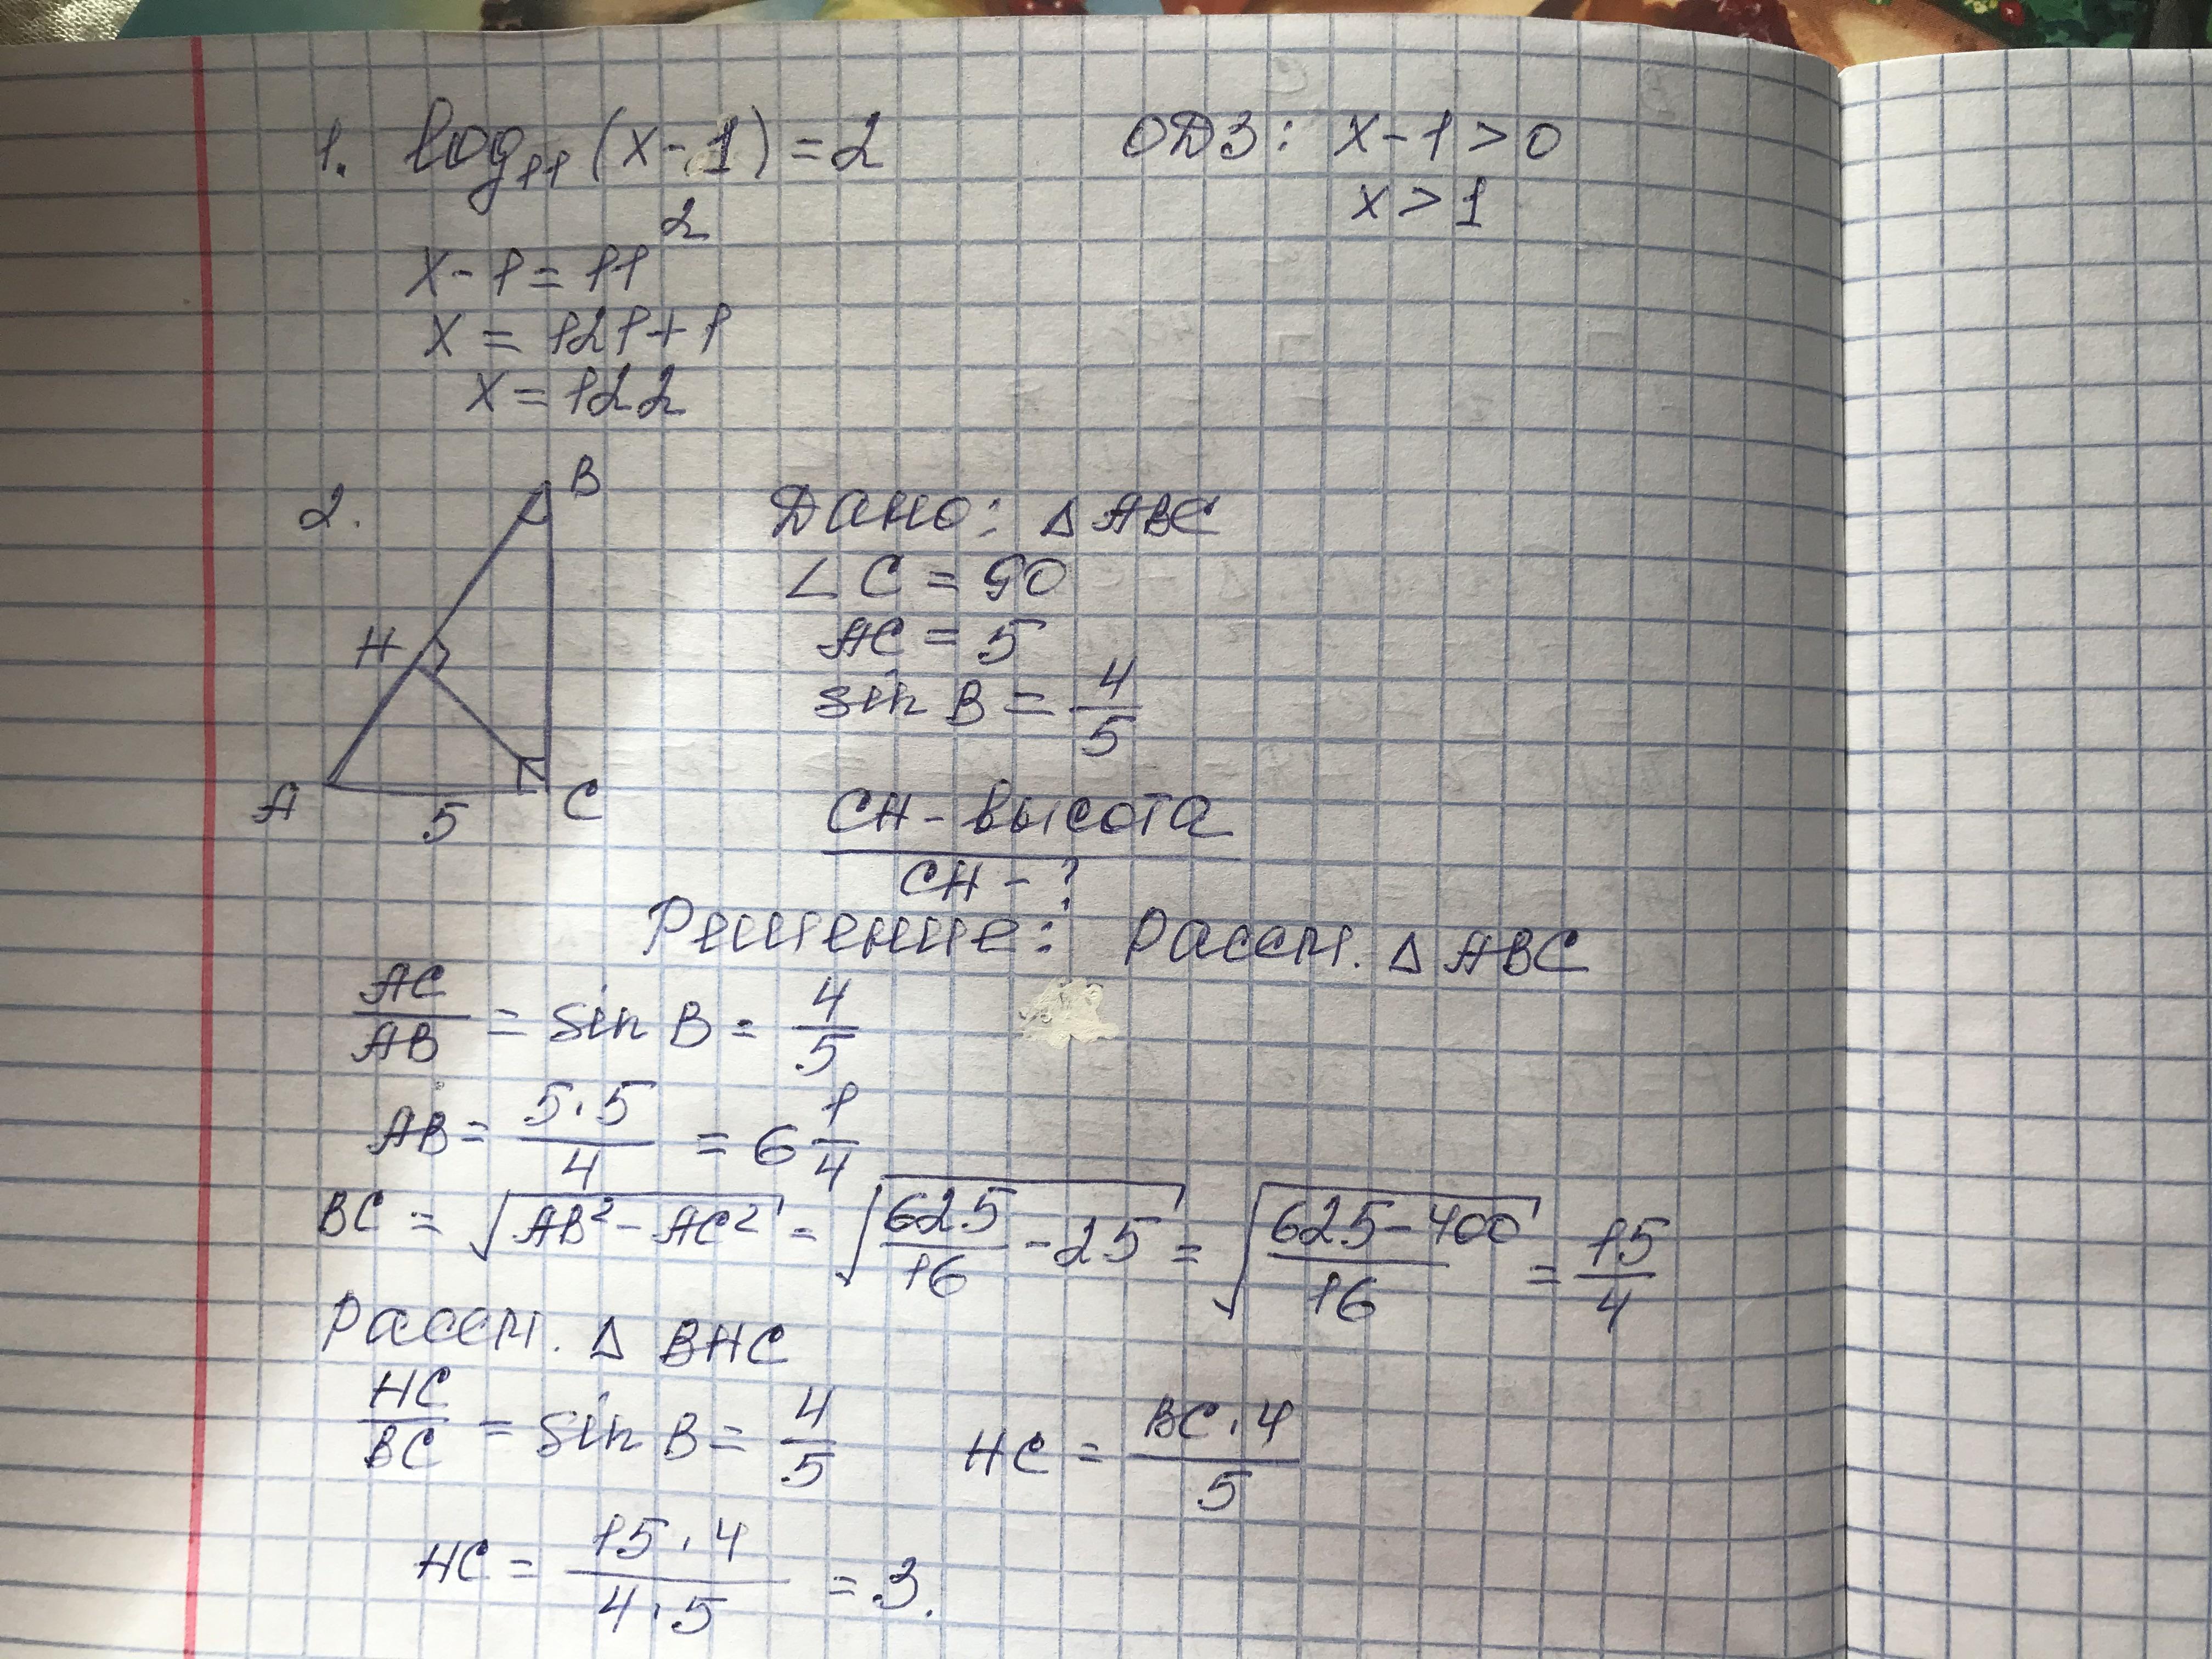 1. log₁₁(x-1)=2 ОДЗ: x-1>0
x>1
x-1=11²
x=121+1
x=122
2.
B
H
A
5
C
Дано: △ABC
∠C=90
AC=5
sin B = 4/5
CH-высота
CH-?
Решение: Рассм. △ABC
AC/AB = sin B = 4/5
AB = 5·5/4 = 6 1/4
BC = √(AB²-AC²) = √(625/16 - 25) = √((625-400)/16) = 15/4
Рассм. △ BHC
HC/BC = sin B = 4/5 HC = BC·4/5
HC = 15·4/4·5 = 3.